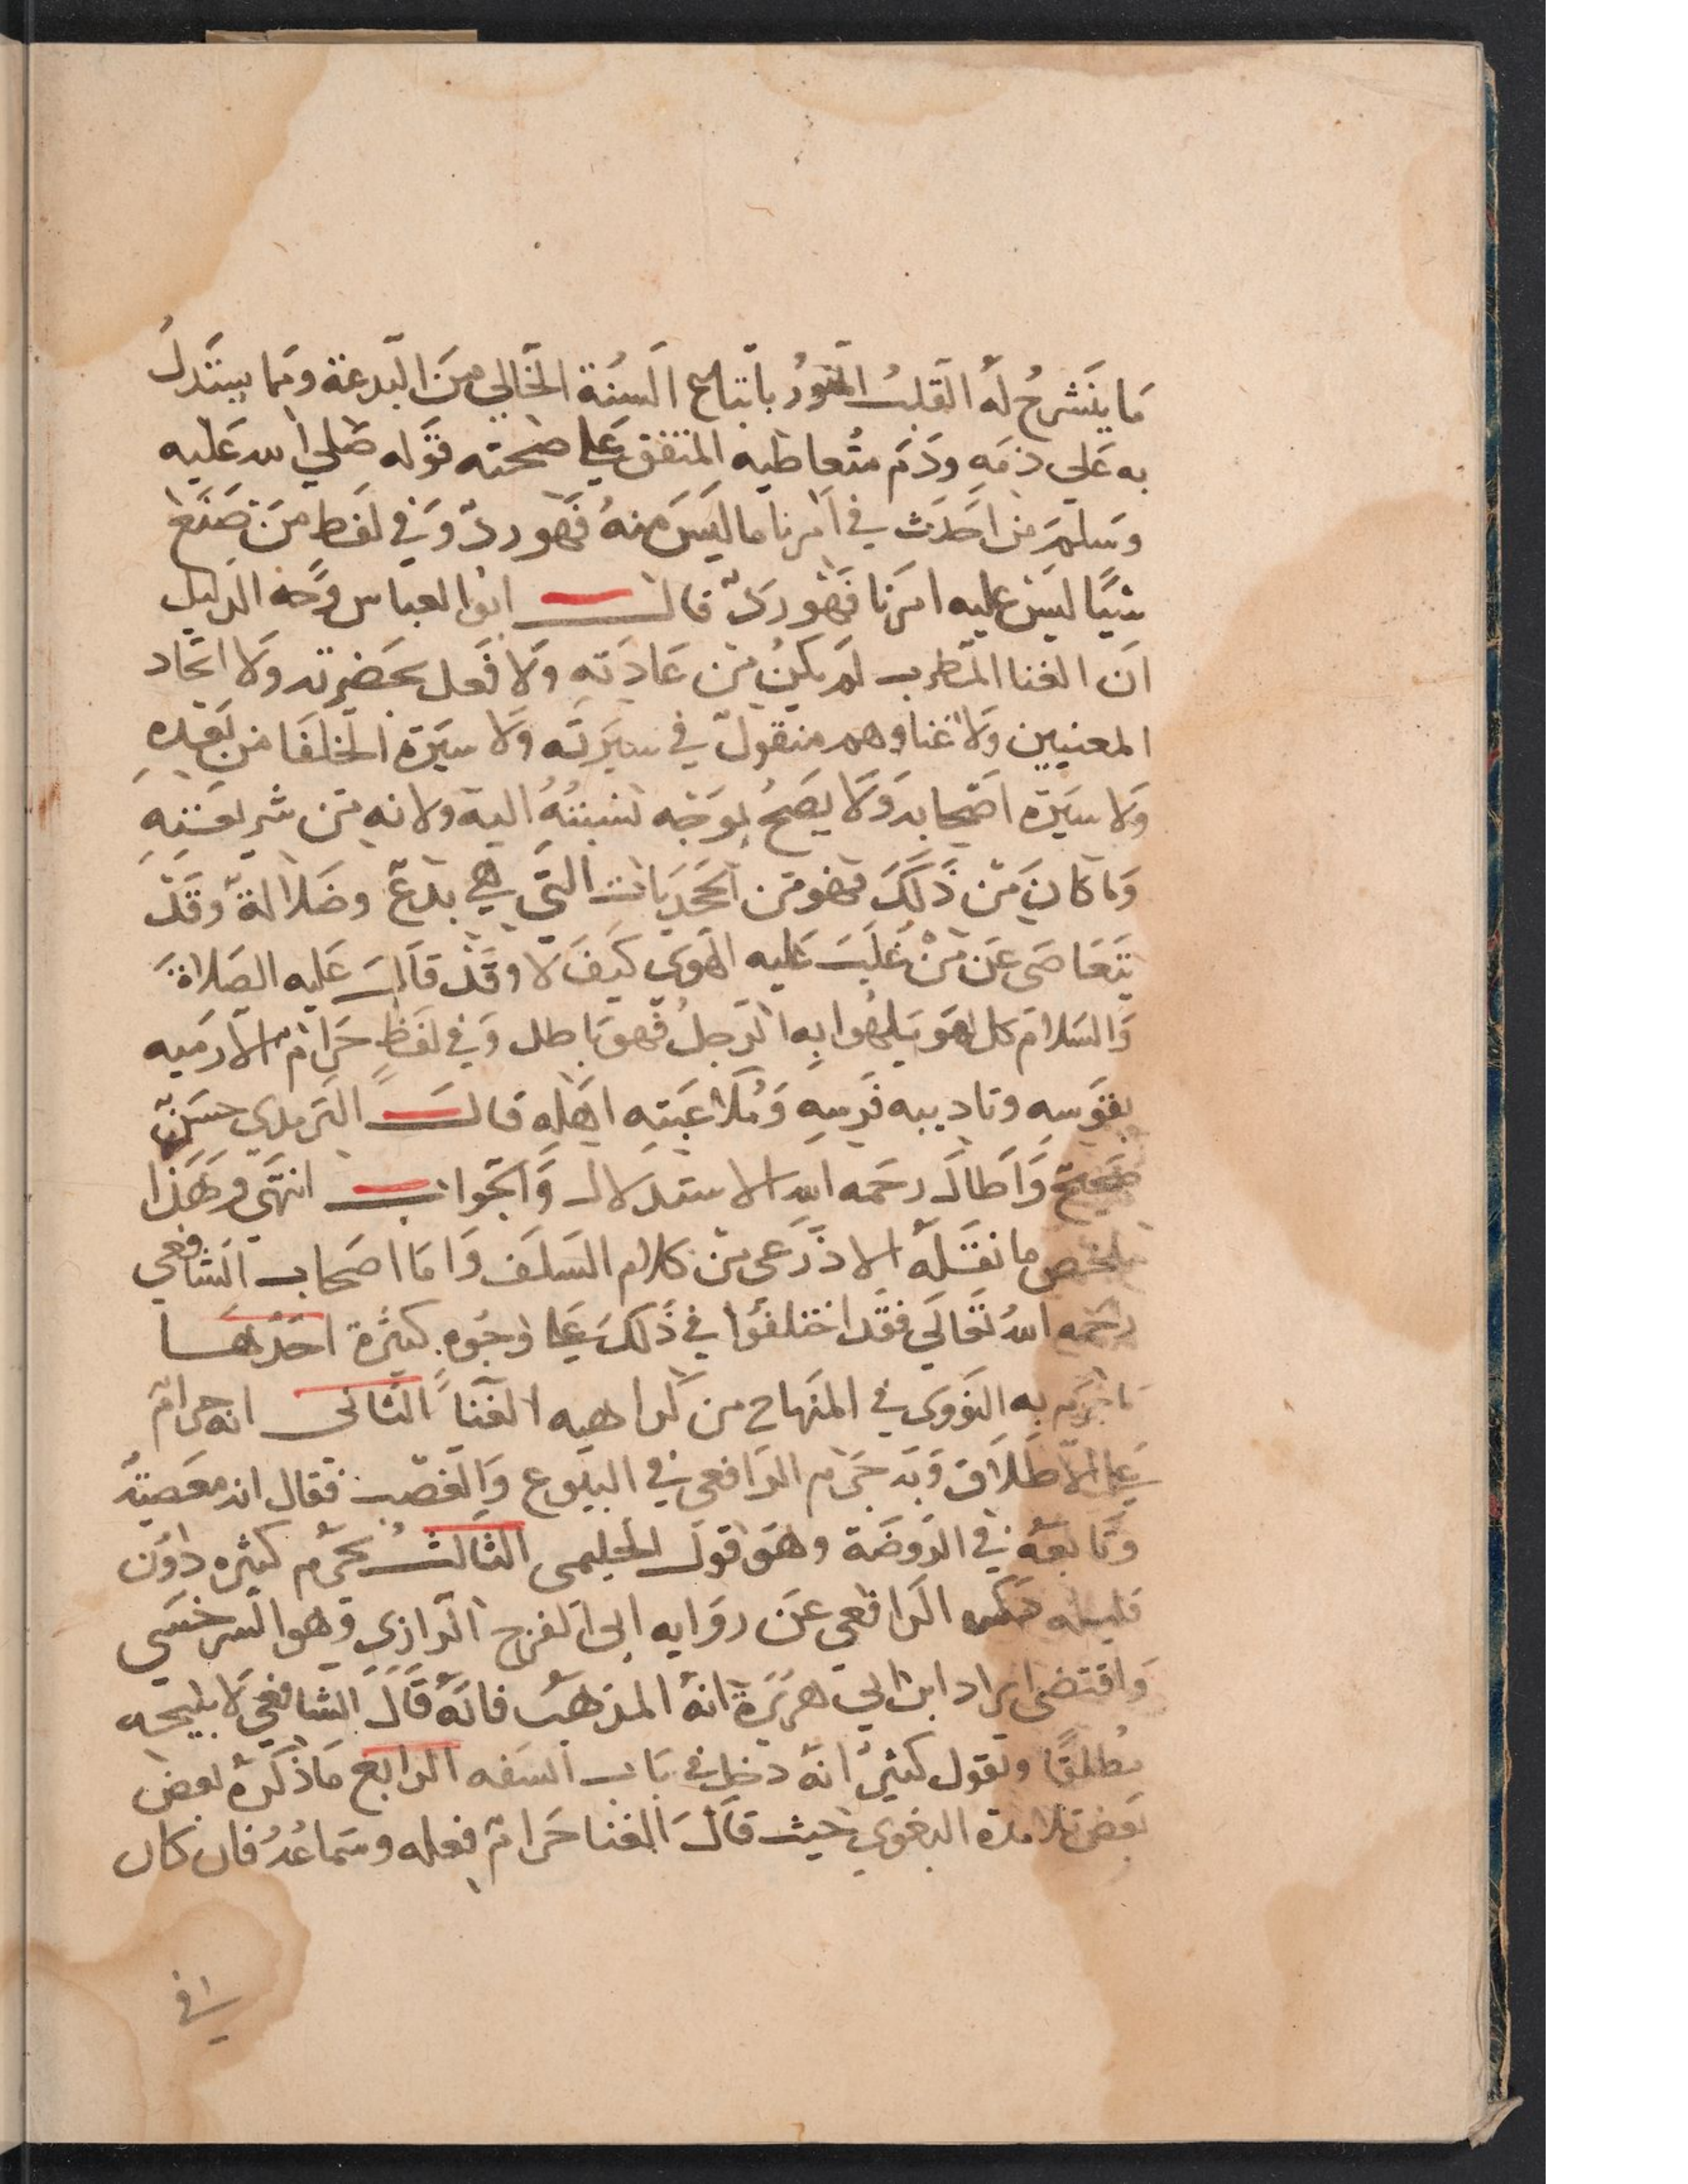 مَا ينَشرحُ لَهُ القَلبُ المنَوّرُ باتباع السنّة الخَالي منَ البَدعة ومَما يستَدلُ
به عَلى ذمَهِ وذَم متُعاطيه المتفق عَلى صحته قوله صَلى الله عَليه
وسَلم من احَدَث في امرنا ما ليسَ منهُ فهَو ردّ وَفي لفظ منَ صَنَع
شيًا ليسَ عليه امرَنا فهَو ردّ قال ابوا لعباس وَجه الدَليل
انَ الغنا المَطرب لم يكنُ منَ عَادَتهِ وَلا فعَل بحَضرته وَلا اتخاد
المغنيين وَلا غناوهم منقولٌ في سيَرتَه وَلا سيَرة الخلفَا من بَعده
وَلا سيَرة اصَحابه وَلا يصَحُ بوَجه نسَبتهُ اليه ولانه منَ شريعَتهِ
وَما كانَ منَ ذَلكَ فهَو منَ المحدَثات التي هي بدَع وضَلالةٌ وقَدَ
يَتعَامَى عَن منْ غلَبَ عَليه الهَوى كيَفَ لا وقَد قاَل عَليه الصَلاةَ
وَالسَلام كل لهَو يَلهُوا به الرَجلُ فهَو بَاطل وَفي لفَظٍ حَرامٌ الا رَميه
بقَوسه وتاديبه فرَسهِ وَمُلاعَبَته اهَله قال الترمدي حسَن
صَحيحٌ وَاَطالَ رحَمه الله الاستدلال وَالجَواب انتهَى وهَذا
ملخص ما نقَلهُ الاذَرَعى منَ كلام السَلَف وَامَا اصَحاب الشَافعي
رحَمه اللهُ تَعالَى فقَد اختلفُوا في ذَلكَ عَلى وجُوه كثيَرة احَدهَا
مَا جزَم به النَووَى في المنَهاج من كراهيه الغنَا الثانى انه حرامٌ
عَلى الاطَلاق وَبَه جزَم الرَافعي في البيَوع وَالغصَب فقال انه معَصَيةٌ
وتَابعَهُ في الروَضَة وهَو قوَل الحَليمى الثالث يحَرم كثيره دوُن
قليله حكاه الرَافعي عَن روَايه ابى الفرج الرَازي وَهو السرخسَي
وَاقتضى ايراد ابن ابي هريَرة انهُ المذهَب فانهُ قَالَ الشافعي لا يبيحه
مُطلقًا ونقول كثيرٌ انهُ دخل في بَاب السَفه الرابع مَا ذكرَهُ بعض
بَعض تلامدة البغوي حيث قاَلَ الغنا حَرامٌ فعله وسَماعُهُ فان كان
في